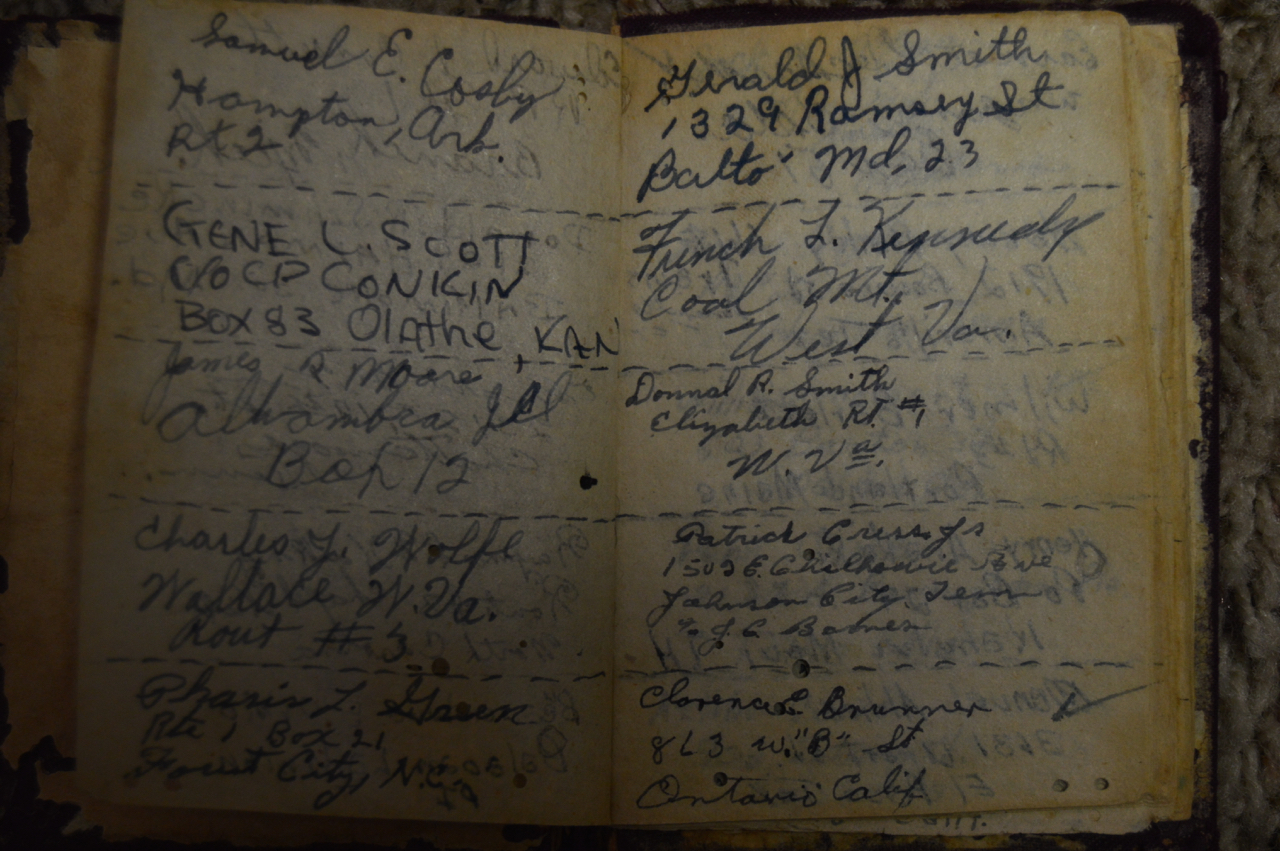 Samuel E. Cosby
Hampton, Ark.
Rt. 2
GENE L. SCOTT
C/O CP CONKIN
BOX 83 Olathe, KAN
James R Moore
Alhambra Ill
Box 12
Charles J. Wolfe
Wallace W. Va.
Rout #3
Pharis L. Green
Rte 1 Box 21
Forest City, N.C.
Gerald J Smith
1329 Ramsey St
Balto Md, 23
French L. Kennedy
Coal Mt.
West Va.
Donnal R. Smith
Elizabeth Rt #1
W. Va.
Patrick Cress Jr
1502 E. Chilhowie Ave
Johnson City Tenn
% J. C. Barnes
Clarence E Brunner
863 W. "B" St
Ontario Calif